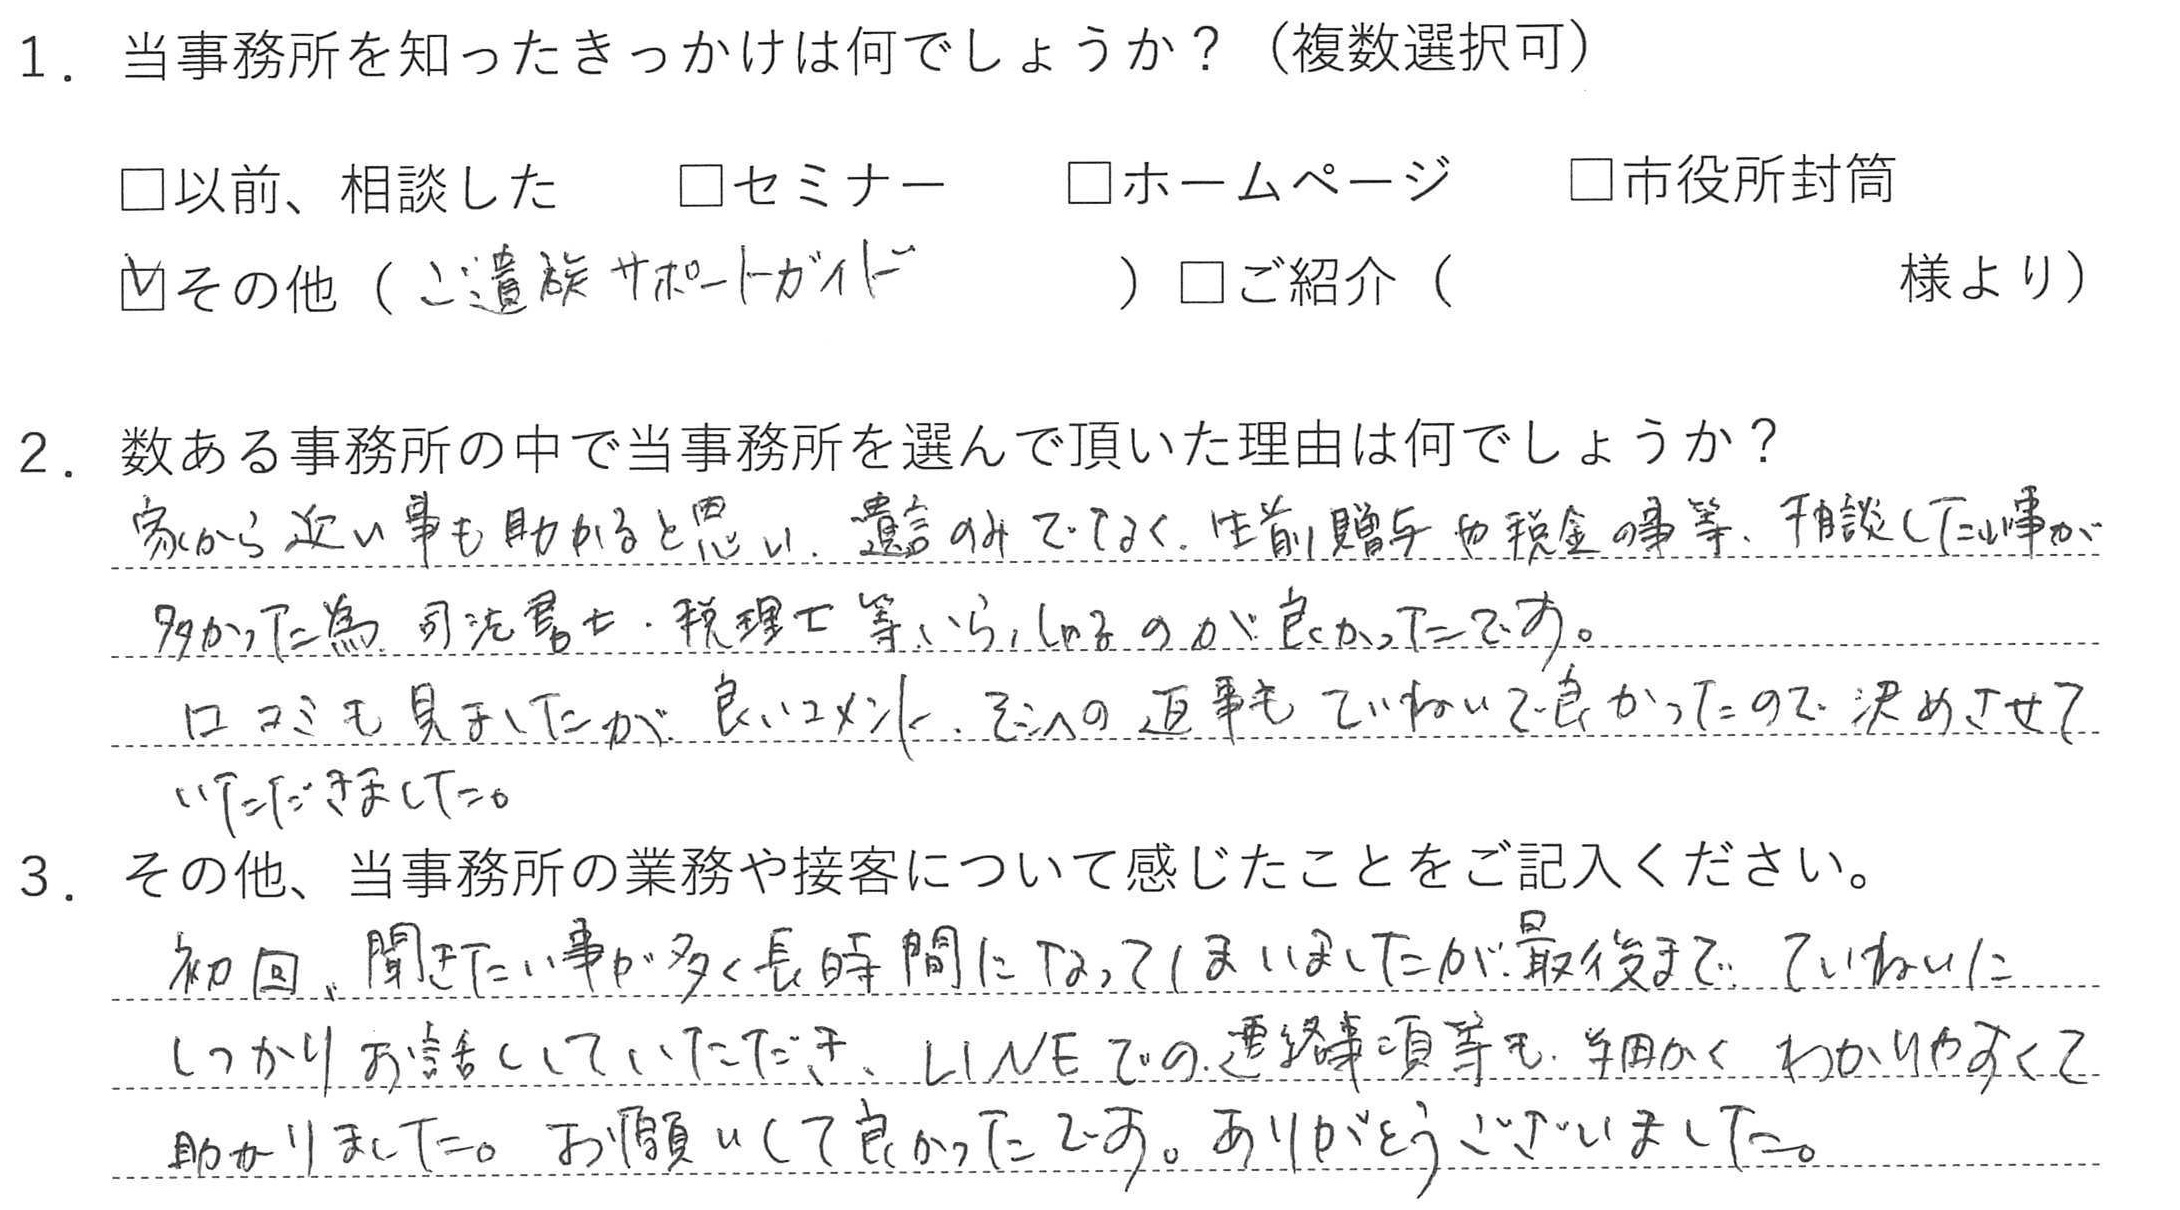 1. 当事務所を知ったきっかけは何でしょうか？（複数選択可）
□以前、相談した □セミナー □ホームページ □市役所封筒
☑その他（ご遺族サポートガイド ）□ご紹介（ 様より）
2. 数ある事務所の中で当事務所を選んで頂いた理由は何でしょうか？
家から近い事も助かると思い、遺言のみでなく、生前贈与や税金の事等、相談したい事が
多かった為、司法書士・税理士等いらっしゃるのが良かったです。
口コミも見ましたが、良いコメント、そこへの返事もていねいで良かったので決めさせて
いただきました。
3. その他、当事務所の業務や接客について感じたことをご記入ください。
初回、聞きたい事が多く長時間になってしまいましたが、最後まで、ていねいに
しっかりお話ししていただき、LINEでの連絡事項等も、細かくわかりやすくて
助かりました。お願いして良かったです。ありがとうございました。